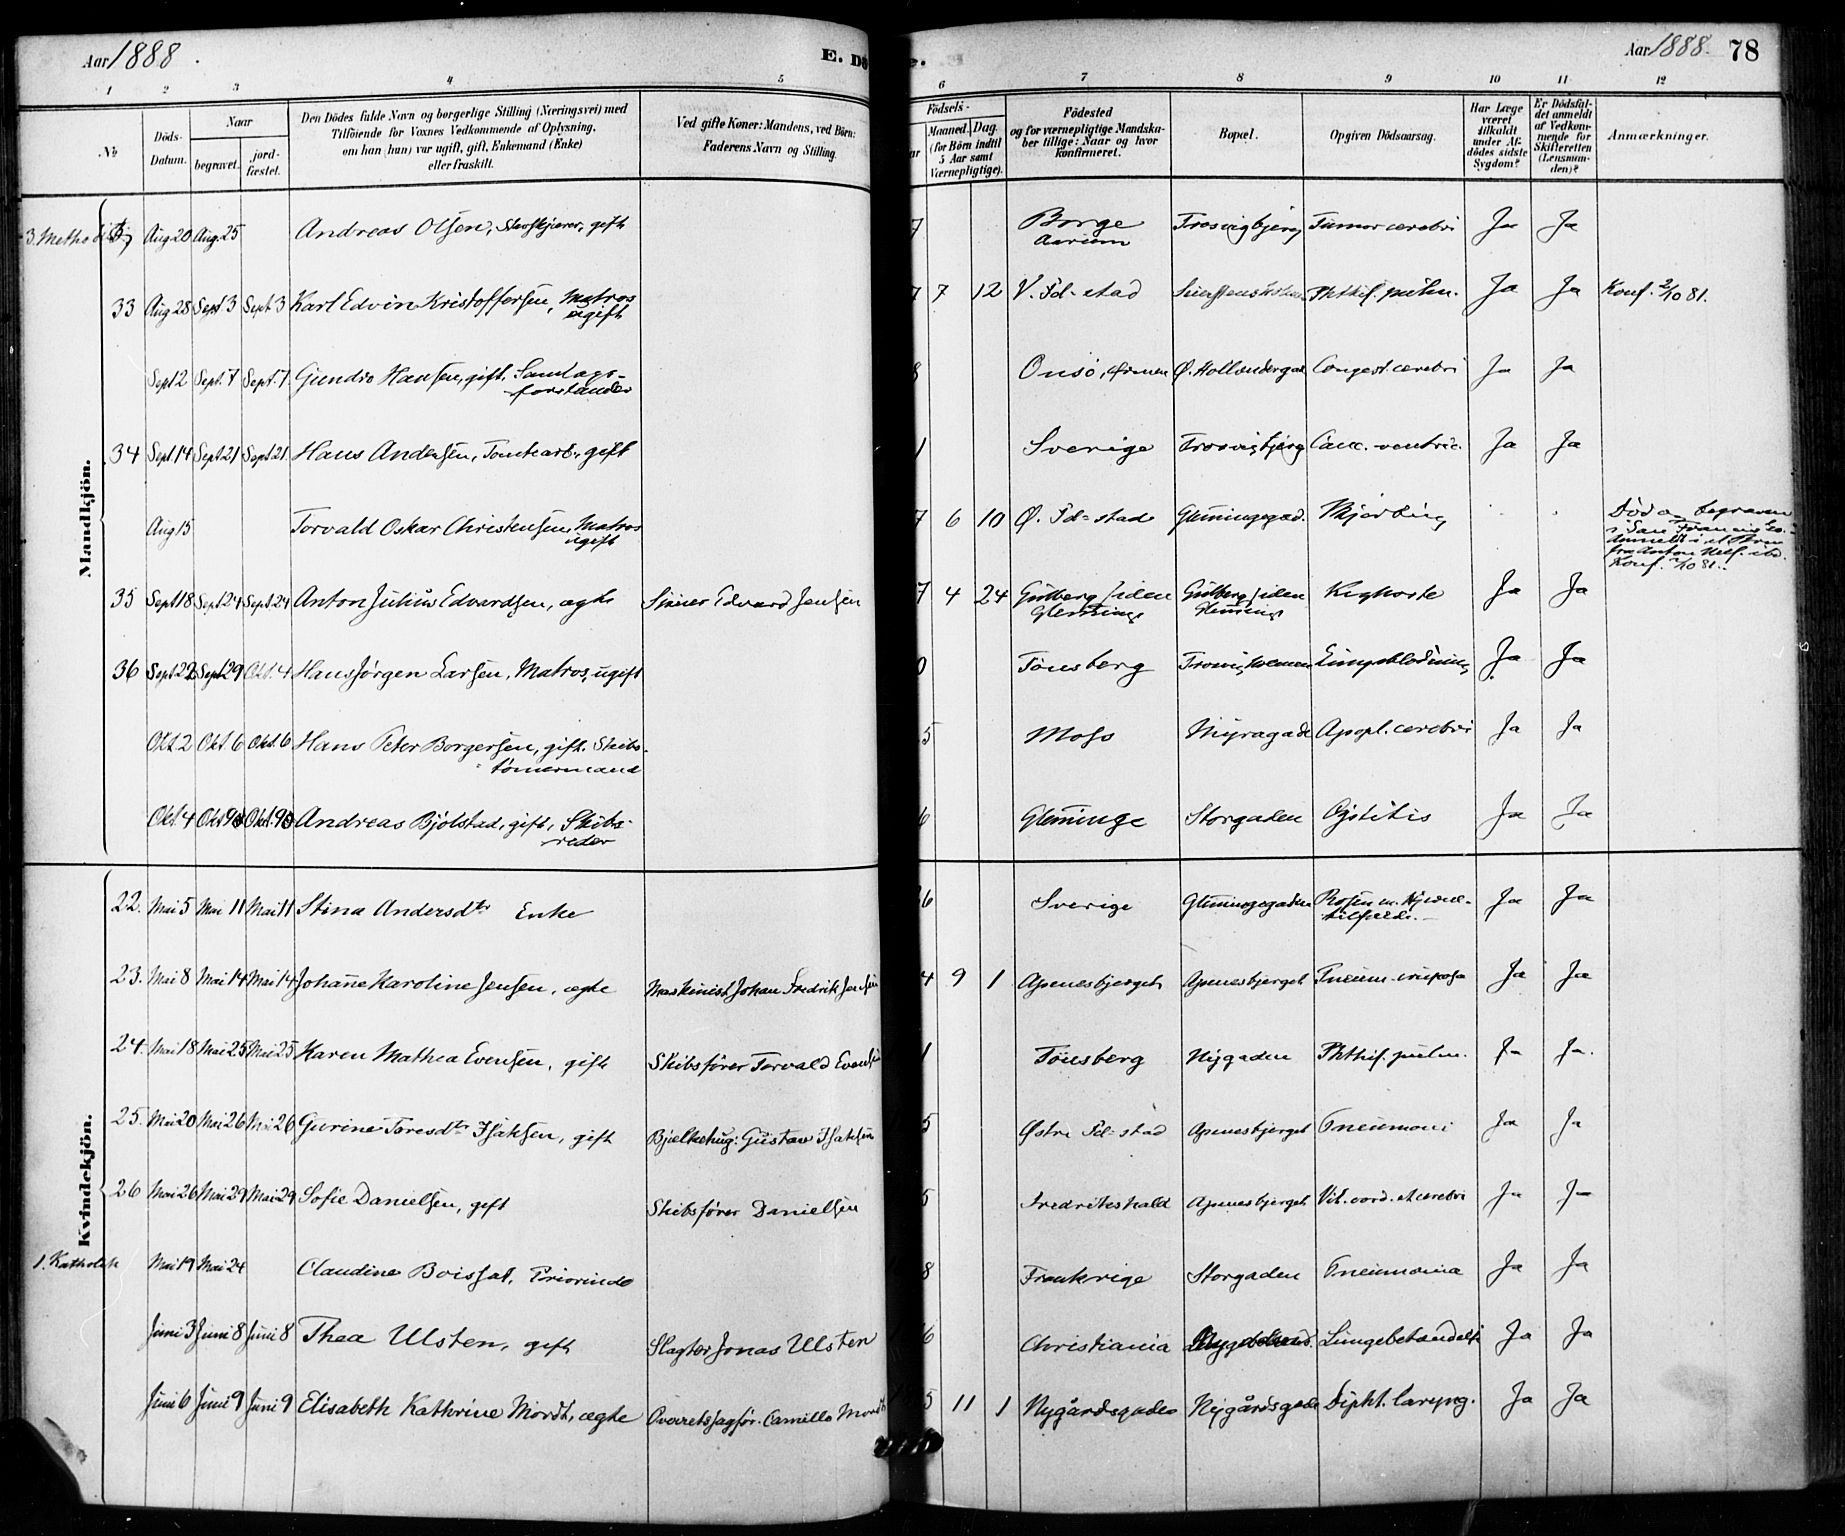 Aar 1888.
E. Dø
e.
Aar 1888. 78
1 2 3 4 5 6 7 8 9 10 11 12
№
Døds-Datum.
Naar
begravet.
jord-fæstet.
Den Dödes fulde Navn og borgerlige Stilling (Næringsvei) med
Tilföiende for Voxnes Vedkommende af Oplysning,
om han (hun) var ugift, gift, Enkemand (Enke)
eller fraskilt.
Ved gifte Koner: Mandens, ved Börn:
Faderens Navn og Stilling.
Födsels-
Maaned. Dag.
(for Börn indtil
5 Aar samt
Værnepligtige).
Födested
og for værnepligtige Mandska-
ber tillige: Naar og hvor
konfirmeret.
Bopæl.
Opgiven Dödsaarsag.
Har Læge
været
tilkaldt
under Af-
dödes sidste
Sygdom?
Er Dödsfal-
det anmeldt
af Vedkom-
mende for
Skifteretten
(Lensman-
den)?
Anmærkninger.
Mandkjön.
3. Methodist Aug 20 Aug 25 Andreas Olsen, gift 7 Borge Aarum Trosvigbjerg Tumor cerebri Ja Ja
33 Aug 28 Sept 3 Sept 3 Karl Edvin Kristoffersen, Matros ugift 7 7 12 V. Fd-stad Phthis. pulm. Ja Ja Konf. 2/10 81.
Sept 2 Sept. 7 Sept. 7 Hansen, gift. 8 Onsö, Ø. Hollændergad Congest. cerebri Ja Ja
34 Sept. 14 Sept 21 Sept 21. Hans Andersen, Tomtearb., gift 1 Sverige Trosvigbjerg Canc. ventric. Ja Ja
Aug 15 Torvald Oskar Christensen, Matros ugift 7 6 10 Ø. Fd-stad Glemmingegad. Död og begraven i San Francisco. Konf. 2/10 81.
35 Sept 18 Sept 24 Sept 24 Anton Julius Edvardsen, ægte Edvard Jensen 7 4 24 Gudbergsiden Glemminge Gudbergsiden Glemminge Kighoste Ja Ja
36 Sept 22 Sept 29 Okt. 4 Hans Jørgen Larsen, Matros, ugift 0 Tønsberg Trosvigholmen Lungeblødning Ja Ja
Okt. 2 Okt. 6 Okt. 6 Hans Peter Borgersen, gift. Skibs-tømermand 5 Moss Myragade Apopl. cerebri Ja Ja
Okt. 4 Okt 9 Okt. 9 Andreas Bjölstad, gift, Skibs-reder 6 Glemminge Storgaden Cystitis Ja Ja
Kvindekjön.
22. Mai 5 Mai 11 Mai 11 Stina Andersdtr Enke 6 Sverige Glemmingegaden Rosen m. Hjerne-tilfælde. Ja Ja
23. Mai 8 Mai 14 Mai 14 Johanne Karoline Jensen, ægte Maskinist Johan Fredrik Jensen 4 9 1 Apenesbjerget Apenesbjerget Pneum. cruposa Ja Ja
24. Mai 18 Mai 25 Mai 25 Karen Mathea Evensen, gift Skibsfører Torvald Evensen 1 Tønsberg Nygaden Phthis. pulm. Ja Ja.
25. Mai 20 Mai 26 Mai 26 Gurine Toresdtr Isaksen, gift Bjelkehug: Gustav Isaksen 5 Østre Fd-stad Apenesbjerget Pneumoni Ja Ja
26 Mai 26 Mai 29 Mai 29 Sofie Danielsen, gift Skibsfører Danielsen 5 Fredrikshald Apenesbjerget Vit. cord. et cerebri Ja Ja
1. Katholsk Mai 19 Mai 24 Claudine Boissat, Priorinde 8 Frankrige Storgaden Pneumonia Ja Ja
Juni 3 Juni 8 Juni 8 Thea Ulsten, gift Slagter Jonas Ulsten 6 Christiania Lungebetændelse Ja Ja
Juni 6 Juni 9 Juni 9 Elisabeth Kathrine Mordt, ægte Overretssagfør. Camillo Mordt 5 11 1 Nygårdsgaden Nygårdsgade Dipht. laryng. Ja Ja